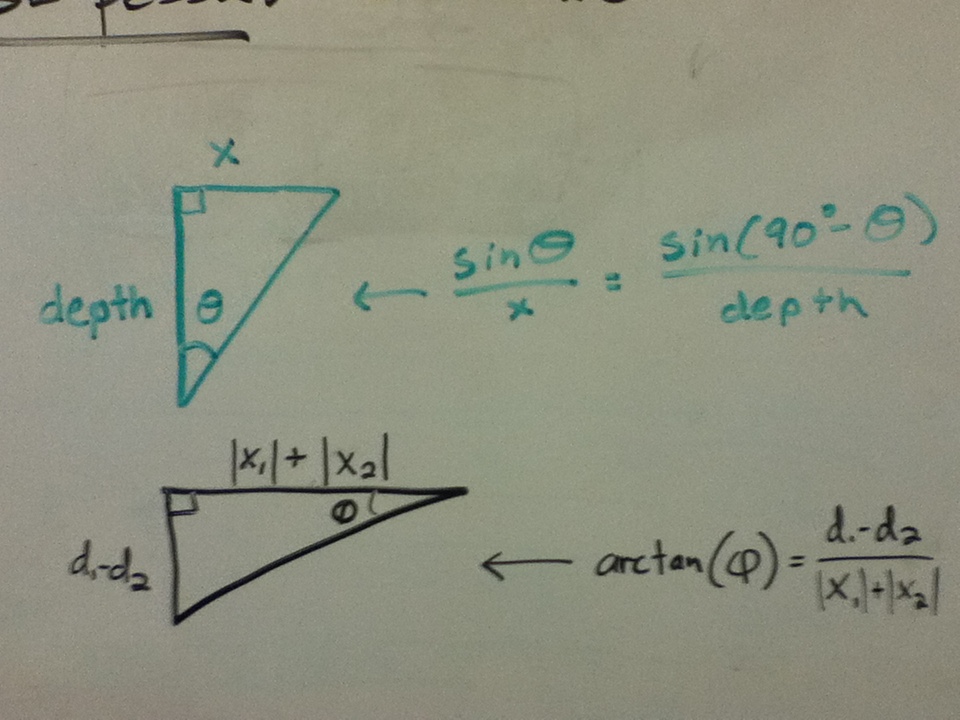 x
depth θ ← sinθ/x = sin(90°-θ)/depth
|x₁|+|x₂|
φ
d₁-d₂ ← arctan(φ) = d₁-d₂/|x₁|+|x₂|